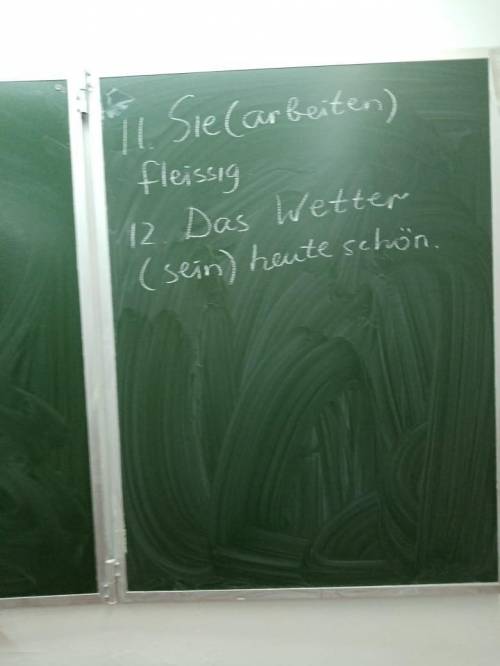 11. Sie (arbeiten)
fleissig
12. Das Wetter
(sein) heute schön.